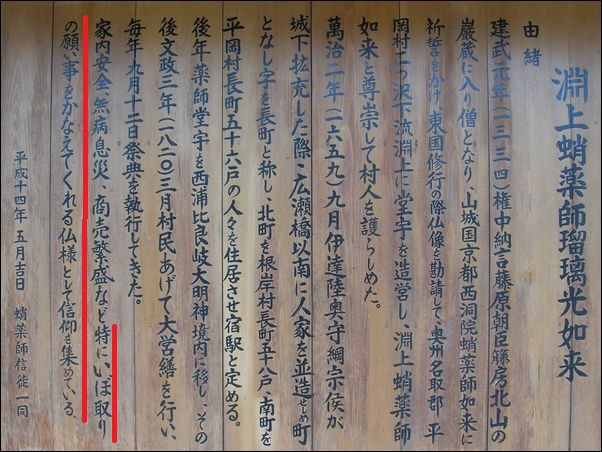 淵上蛸薬師瑠璃光如来
由緒
建武元年(一三三四)権中納言藤原朝臣藤房北山の
巌蔵に入り僧となり、山城国京都西洞院蛸薬師如来に
祈誓をかけ、東国修行の際仏像を勘請して、奥州名取郡平
岡村二つ沢下流淵上に堂宇を造営し、淵上蛸薬師
如来と尊崇して村人を護らしめた。
萬治二年(一六五九)九月伊達陸奥守綱宗侯が
城下拡充した際、広瀬橋以南に人家を並造せしめ町
となし字を長町と称し、北町を根岸村長町五十八戸、南町を
平岡村長町五十六戸の人々を住居させ宿駅と定める。
後年薬師堂宇を西浦比良岐大明神境内に移し、その
後文政三年(一八二〇)三月村民あげて大営繕を行い、
毎年九月十二日祭典を執行してきた。
家内安全、無病息災、商売繁盛など特にいぼ取り
の願い事をかなえてくれる仏様として信仰を集めている。
平成十四年 五月吉日 蛸薬師信徒一同